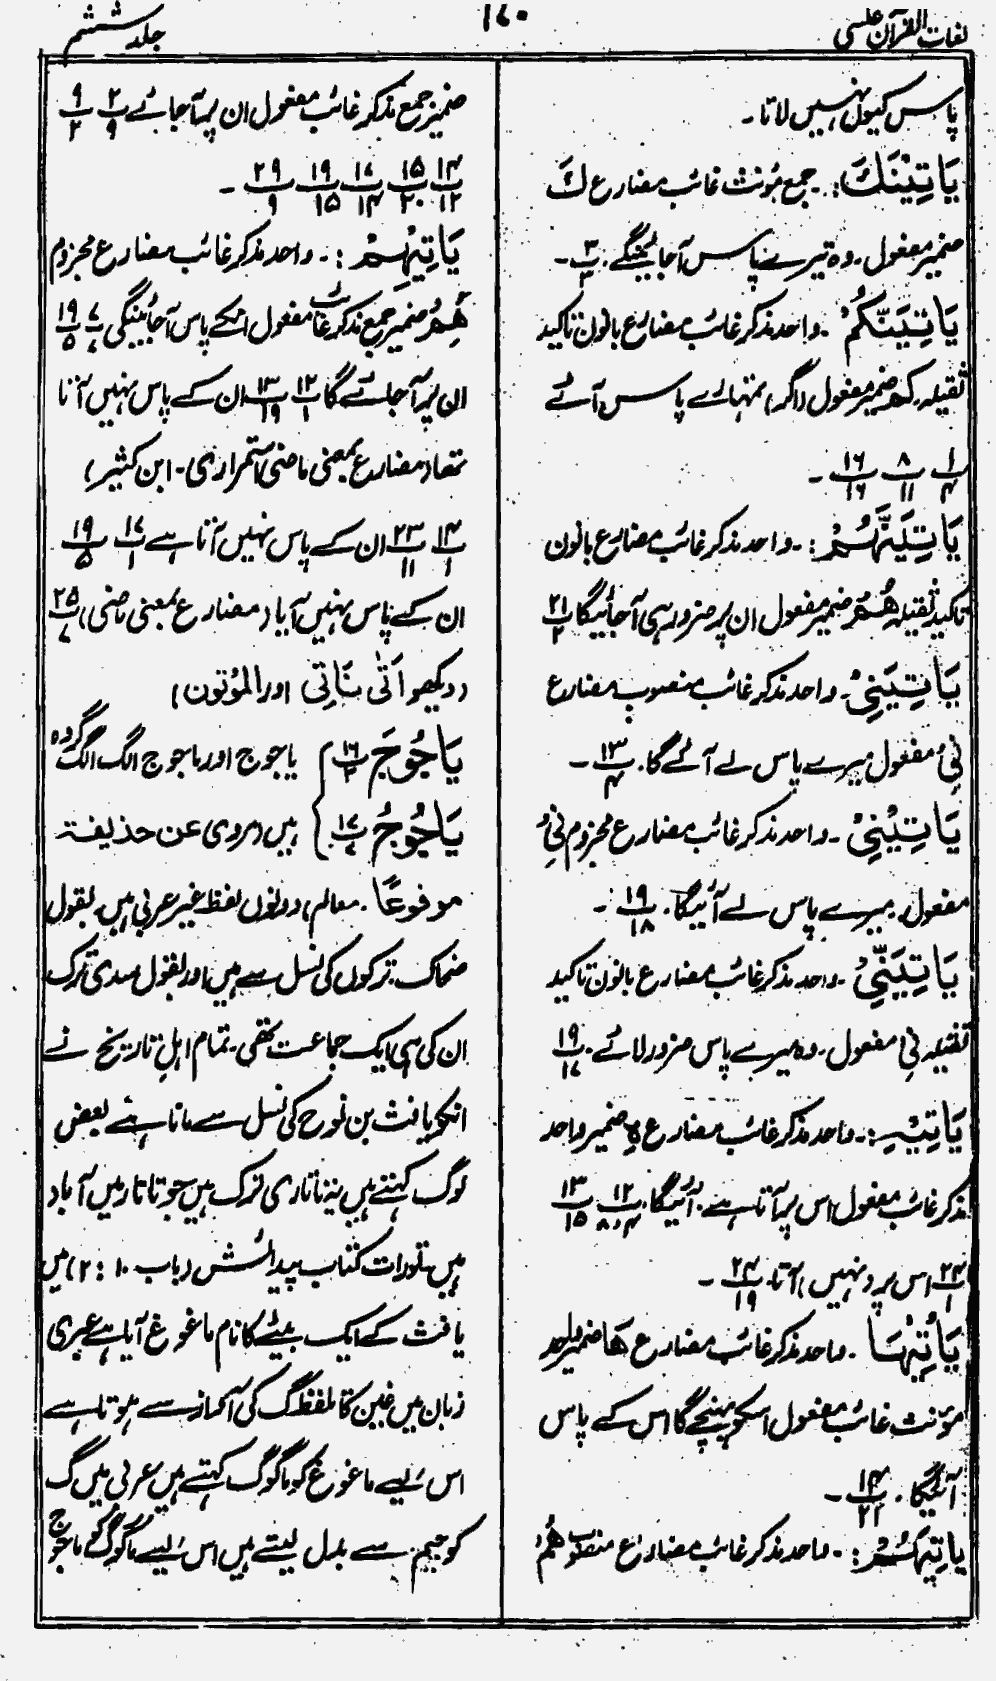 لغات القرآن علسی
۱۷۰
جلد ششم
پاس کیوں نہیں لاتا۔
یَاتِیْنَكَ:۔ جمع مؤنث غائب مضارع كَ
ضمیر مفعول۔ وہ تیرے پاس آجائینگے۔ ۳/۳۔
یَاتِیَنَّکُمْ۔ واحد مذکر غائب مضارع بانون تاکید
ثقیلہ۔ کم ضمیر مفعول (اگر) تمہارے پاس آئے
۱/۴ ۸/۱۱ ۱۶/۱۶۔
یَاتِیَنَّهُمْ:۔ واحد مذکر غائب مضارع بانون
تاکید ثقیلہ هُمْ ضمیر مفعول ان پر ضرور ہی آجائیگا ۲۱/۲
یَاتِیَنِیْ۔ واحد مذکر غائب منصوب مضارع
نِیْ مفعول میرے پاس لے آئے گا۔ ۱۳/۴۔
یَاتِیْنِیْ۔ واحد مذکر غائب مضارع مجزوم نِیْ
مفعول۔ میرے پاس لے آئیگا۔ ۱۹/۱۸۔
یَاتِیَنِّیْ۔ واحد مذکر غائب مضارع بانون تاکید
ثقیلہ نِیْ مفعول۔ وہ میرے پاس ضرور لائے۔ ۱۹/۱۷
یَاتِیْهِ:۔ واحد مذکر غائب مضارع هِ ضمیر واحد
مذکر غائب مفعول اس پر آتا ہے۔ آئیگا۔ ۱۲/۸،۴ ۱۳/۱۵
۲۴/۱ اس پر (نہیں) آتا۔ ۲۴/۱۹۔
یَاْتِیْهَا۔ واحد مذکر غائب مضارع هَا ضمیر واحد
مؤنث غائب مفعول اسکو پہنچے گا اس کے پاس
آئیگا۔ ۱۴/۲۱۔
یَاتِیَهُمْ:۔ واحد مذکر غائب مضارع منصوب هُمْ
ضمیر جمع مذکر غائب مفعول ان پر آجائے ۲/۹ ۹/۲
۱۴/۱۲ ۱۵/۲۰ ۱۷/۱۴ ۱۹/۱۵ ۲۹/۹۔
یَاتِیْهِمْ:۔ واحد مذکر غائب مضارع مجزوم
هِمْ ضمیر جمع مذکر غائب مفعول انکے پاس آجائینگی ۷/۷ ۱۹/۵
ان پر آجائے گا ۱۲/۱ ۱۳/۱۹ ان کے پاس نہیں آتا
تھا (مضارع بمعنی ماضی استمراری۔ ابن کثیر)
۱۴/۱ ۲۳/۱۱ ان کے پاس نہیں آتا ہے ۱۷/۱ ۱۹/۵
ان کے پاس نہیں آیا (مضارع بمعنی ماضی) ۲۵/۷
(دیکھو اَتٰی نَاتِی اور المؤتون)
یَاجُوْجَ ۱۶/۲ } یاجوج اور ماجوج الگ الگ گروہ
یَاجُوْجُ ۱۷/۷ } ہیں (مروی عن حذیفۃ
موفوعًا۔ معالم) دونوں لفظ غیر عربی ہیں۔ بقول
ضحاک۔ ترکوں کی نسل سے ہیں اور بقول سدی ترک
ان کی ہی ایک جماعت تھی۔ تمام اہلِ تاریخ نے
انکو یافث بن نوح کی نسل سے مانا ہے بعض
لوگ کہتے ہیں یہ تاتاری ترک ہیں جو تاتار میں آباد
ہیں تورات کتاب پیدائش (باب ۱۰: ۲) میں
یافث کے ایک بیٹے کا نام ماغوغ آیا ہے عبری
زبان میں غین کا تلفظ گ کی آواز سے ہوتا ہے
اس لیے ماغوغ کو ماگوگ کہتے ہیں عربی میں گ
کو جیم سے بدل لیتے ہیں اس لیے ماگوگ کو ماجوج